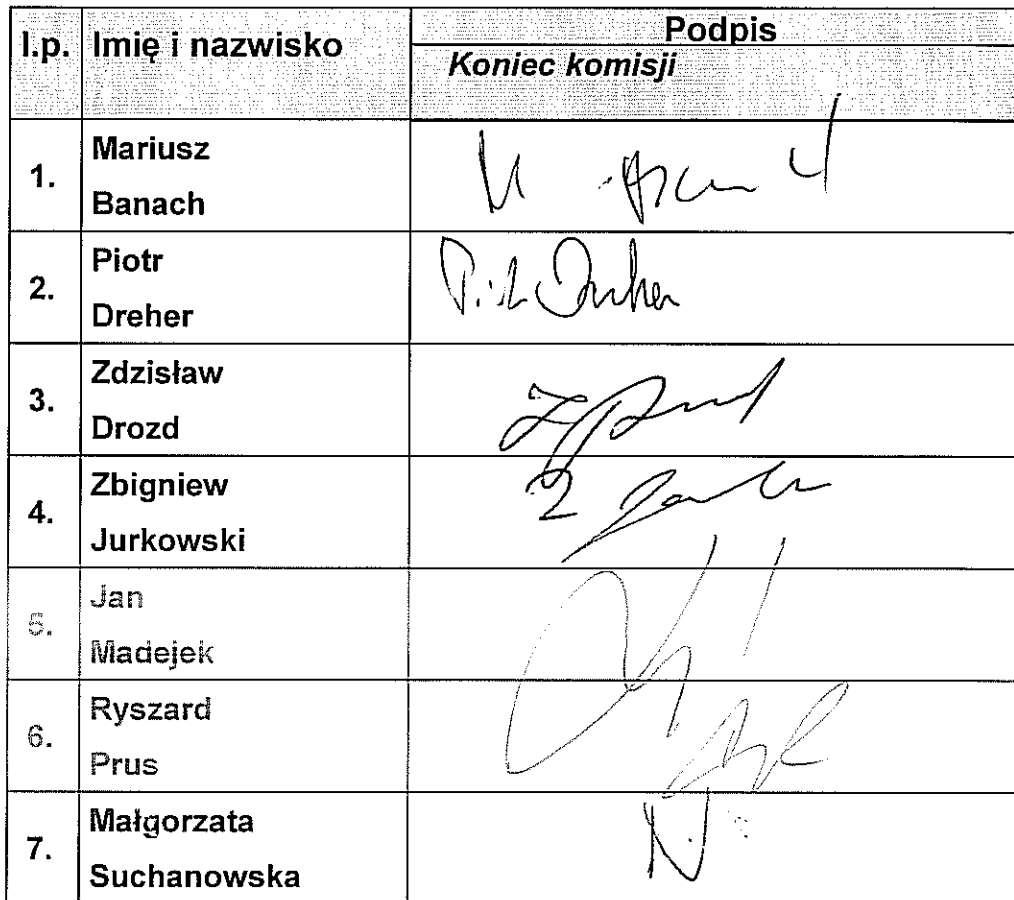 l.p. Imię i nazwisko Podpis
Koniec komisji
1. Mariusz
Banach
2. Piotr
Dreher
3. Zdzisław
Drozd
4. Zbigniew
Jurkowski
5. Jan
Madejek
6. Ryszard
Prus
7. Małgorzata
Suchanowska